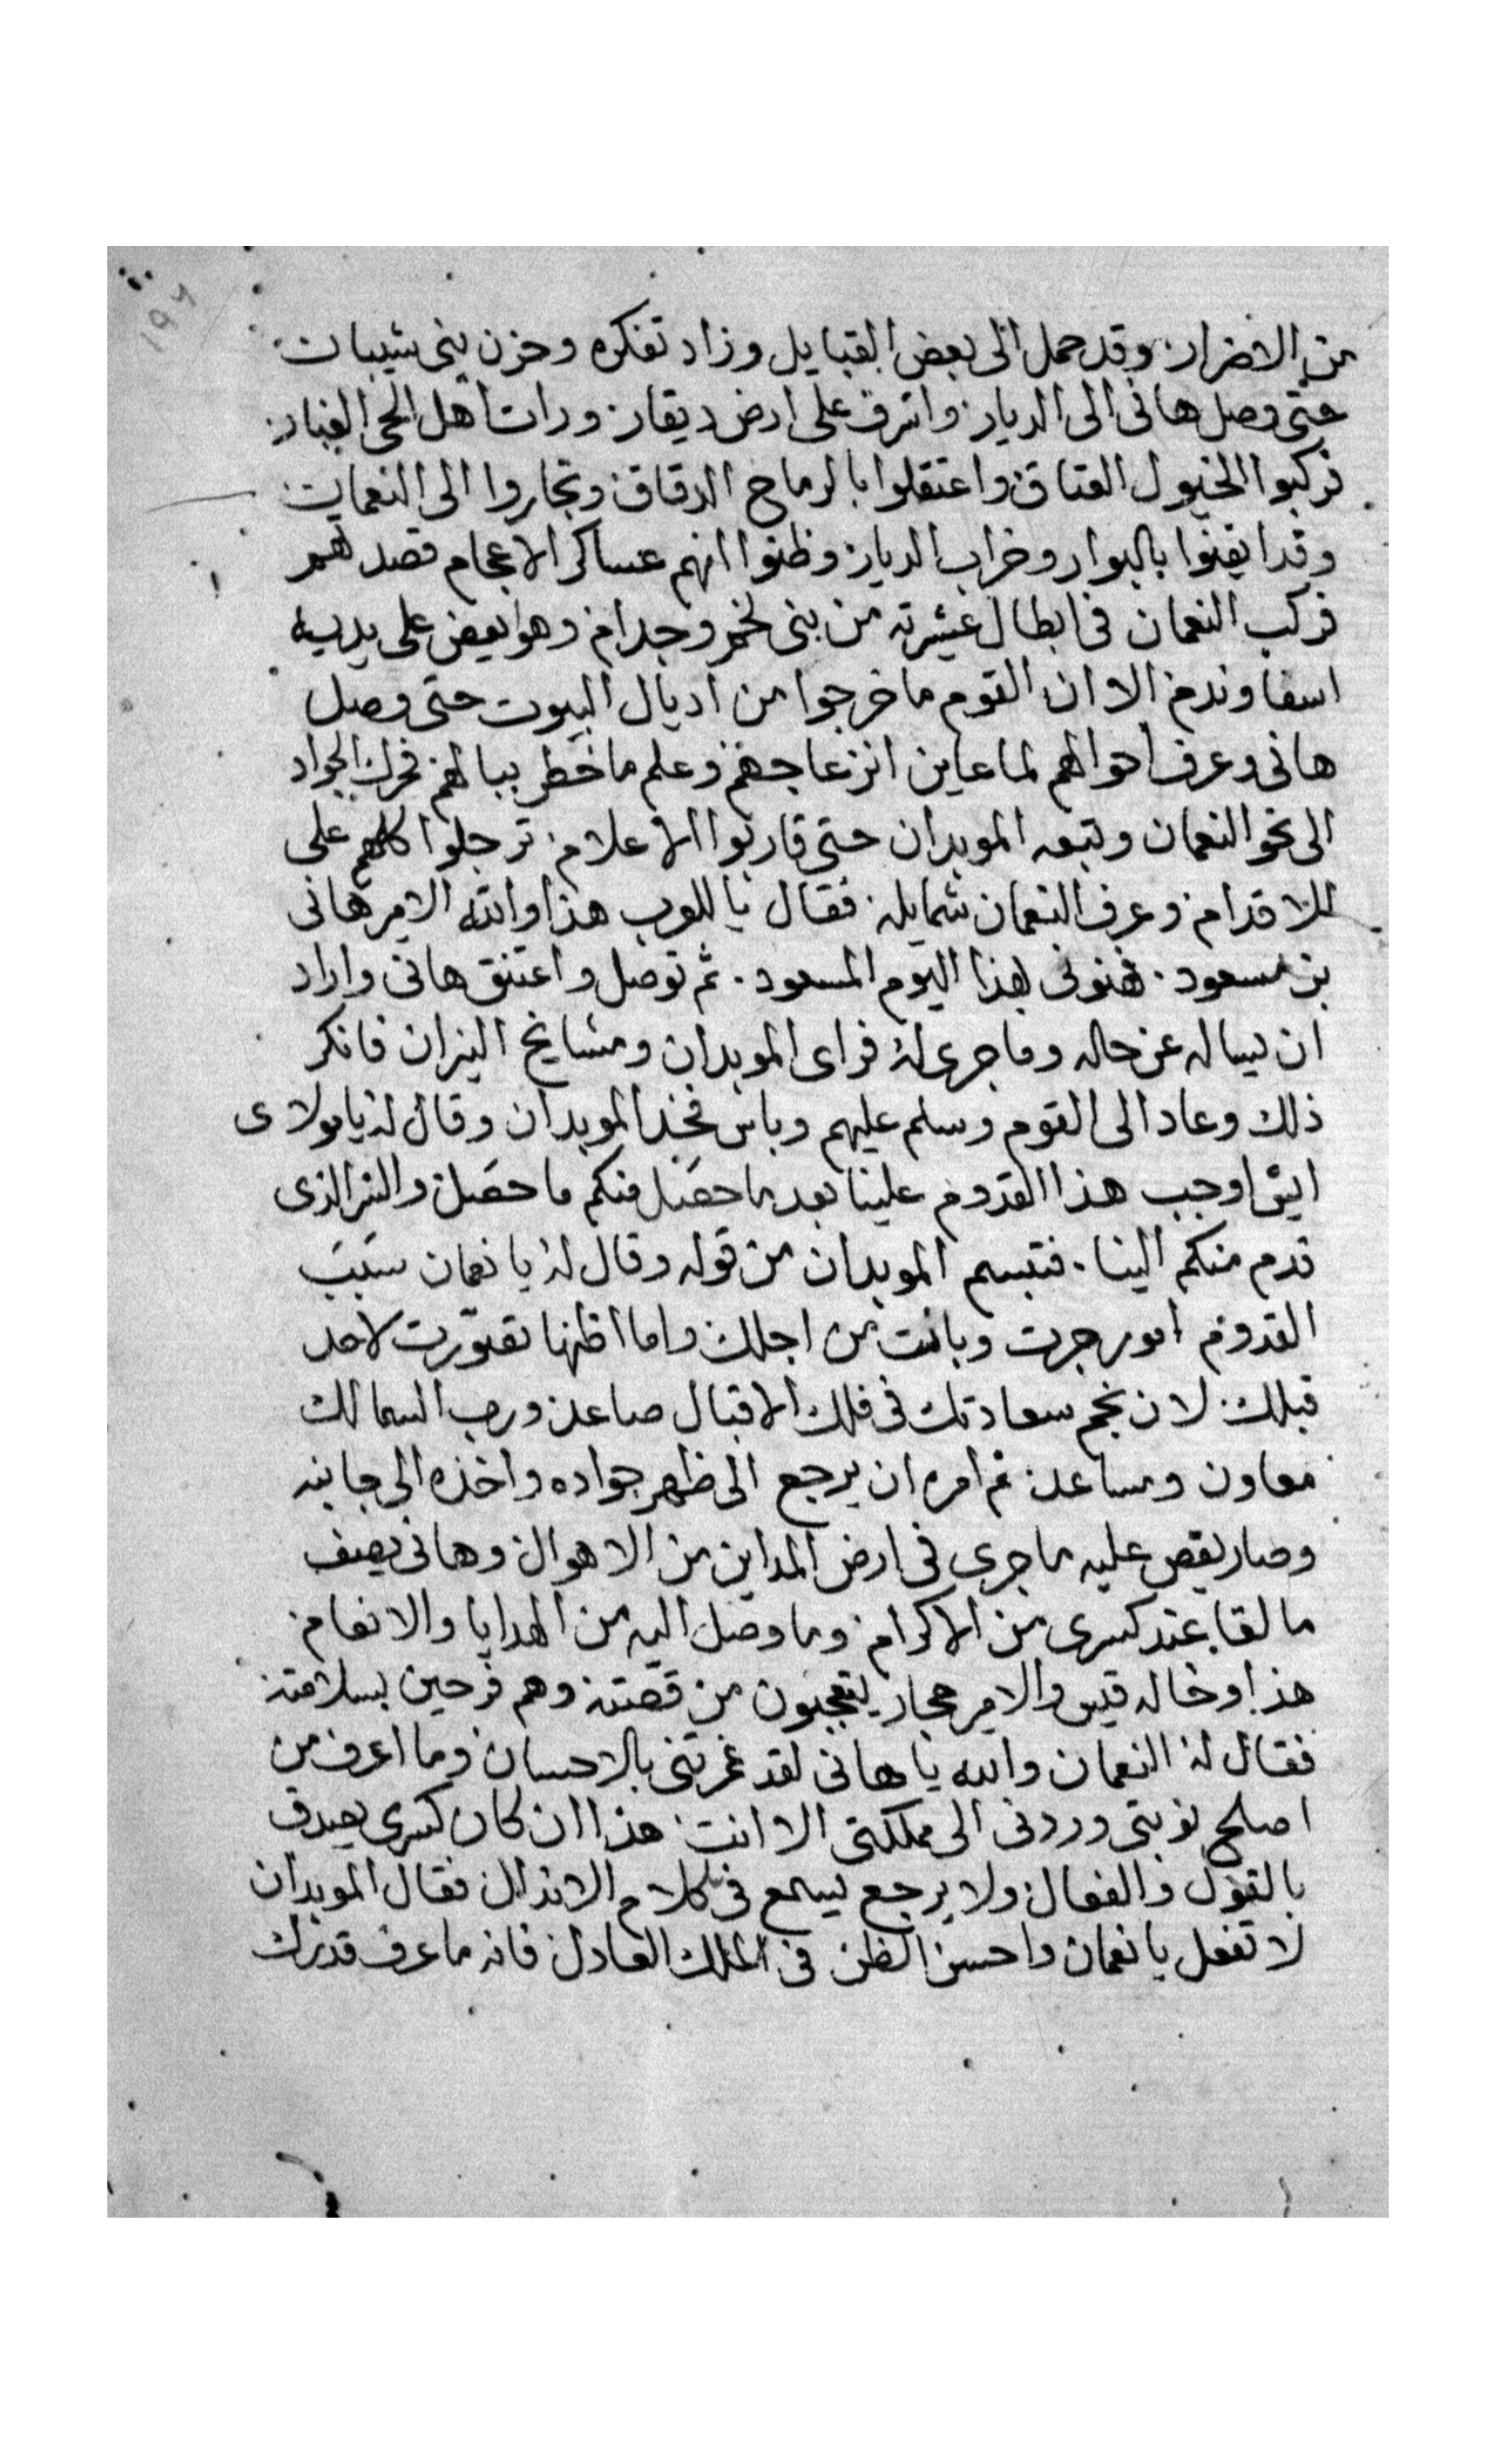 من الاضرار وقد حمل الى بعض القبايل وزاد تفكره وحزن بنى شيبان
حتى وصل هانى الى الديار واشرف على ارض ديقار ورات اهل الحى الغبار
فركبوا الخيول العتاق واعتقلوا بالرماح الدقاق وتجاروا الى النعمان
وقد ايقنوا بالبوار وخراب الديار وظنوا انهم عساكر الاعجام قصدتهم
فركب النعمان فى ابطال عشيرته من بنى لخم وجدام وهو يعض على يديه
اسفا وندم الا ان القوم ما خرجوا من اديال البيوت حتى وصل
هانى وعرف احوالهم لما عاين انزعاجهم وعلم ما خطر ببالهم فحرك الجواد
الى نحو النعمان وتبعه الموبدان حتى قاربوا الاعلام ترجلوا كلهم على
للاقدام وعرف النعمان شمايله فقال يا للعرب هذا والله الامير هانى
بن مسعود . فهنونى بهذا اليوم المسعود . ثم توصل واعتنق هانى واراد
ان يساله عن حاله وما جرى له فراى الموبدان ومشايخ النيران فانكر
ذلك وعاد الى القوم وسلم عليهم وباس فخد الموبدان وقال له يا مولاى
ايش اوجب هذا القدوم علينا بعد ما حصل منكم ما حصل والشر الذى
قدم منكم الينا . فتبسم الموبدان من قوله وقال له يا نعمان سبب
القدوم امور جرت وبانت من اجلك واما اظنها تقورت لاحد
قبلك لان نجم سعادتك فى فلك الاقبال صاعد ورب السما لك
معاون ومساعد ثم امره ان يرجع الى ظهر جواده واخذه الى جانبه
وصار يقص عليه ما جرى فى ارض المداين من الاهوال وهانى يصف
ما لقا عند كسرى من الاكرام وما وصل اليه من الهدايا والانعام
هذا وخاله قيس والامير حجار يتعجبون من قصته وهم فرحين بسلامته
فقال له النعمان والله يا هانى لقد غمرتنى بالاحسان وما اعرف من
اصلح نوبتى وردنى الى مملكتى الا انت هذا ان كان كسرى يصدق
بالقول والفعال ولا يرجع يسمع فى كلام الاندال فقال الموبدان
لا تفعل يا نعمان واحسن الظن فى الملك العادل فانه ما عرف قدرك